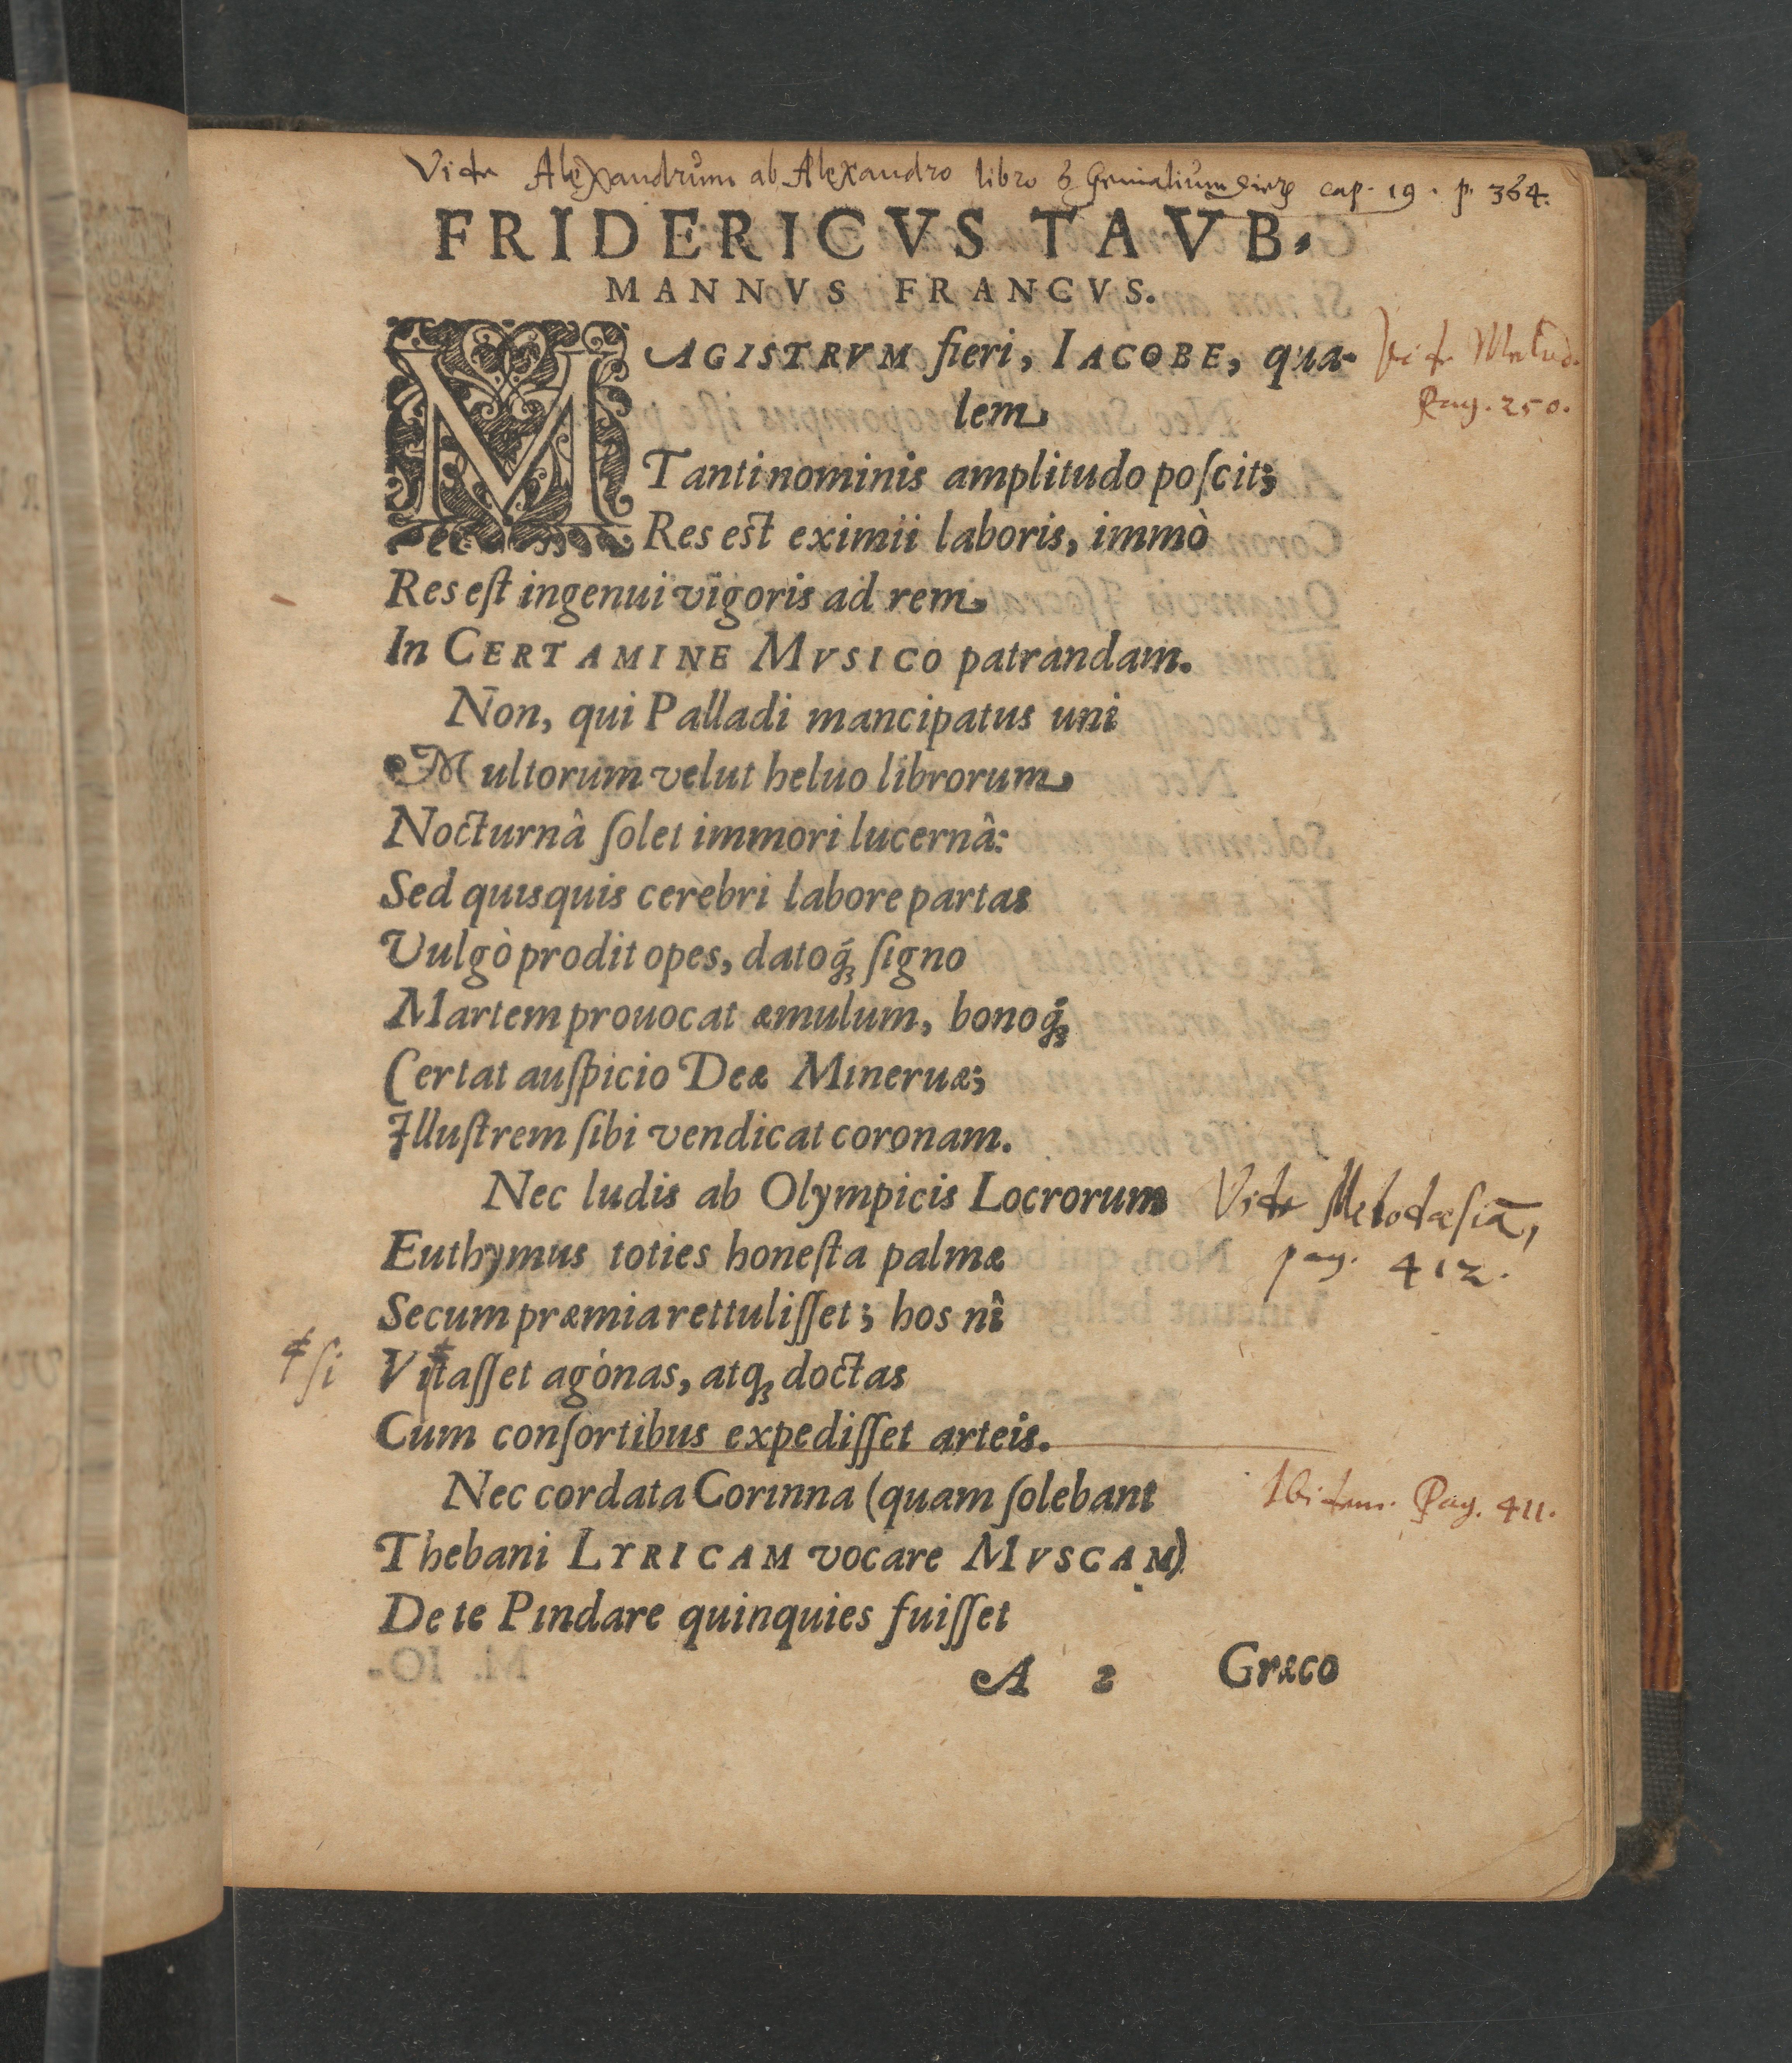 Vide Alexandrum ab Alexandro libro 6 Genialium dierꝝ cap. 19. p. 364.
FRIDERICVS TAVB-
MANNVS FRANCVS.
MAGISTRVM fieri, IACOBE, qua-
lem
Vide Melod.
Pag. 250.
Tanti nominis amplitudo poſcit;
Res est eximii laboris, immò
Res eſt ingenui vigoris ad rem
In CERTAMINE MVSICO patrandam.
Non, qui Palladi mancipatus uni
Multorum velut heluo librorum
Nocturnâ ſolet immori lucernâ:
Sed quisquis cerebri labore partas
Vulgò prodit opes, datoq́ꝫ ſigno
Martem prouocat æmulum, bonoq́ꝫ
Certat auſpicio Deæ Mineruæ;
Illuſtrem ſibi vendicat coronam.
Nec ludis ab Olympicis Locrorum
Vide Melodæſiā,
pag. 412.
Euthymus toties honeſta palmæ
Secum præmia rettuliſſet; hos nî
ſi
Vitaſſet agónas, atqꝫ doctas
Cum conſortibus expediſſet arteis.
Nec cordata Corinna (quam ſolebant
Ibidem. Pag. 411.
Thebani LYRICAM vocare MVSCAM)
De te Pindare quinquies fuiſſet
A 2 Græco